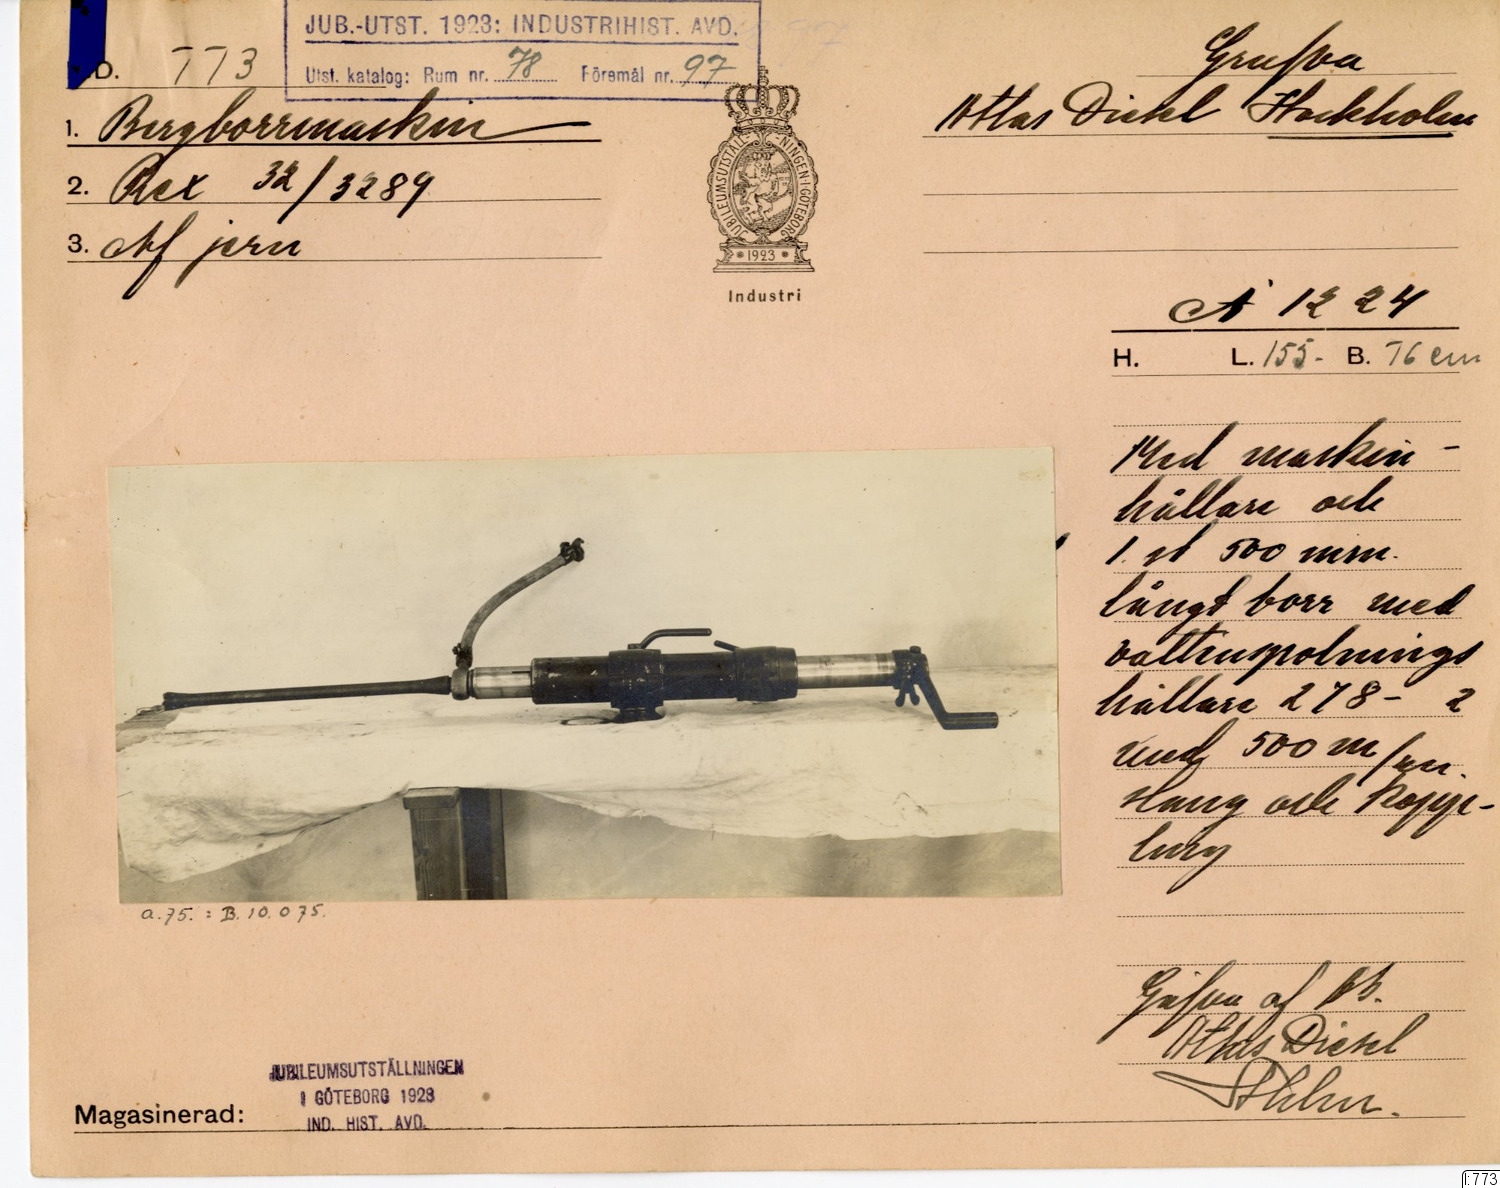 JUB.-UTST. 1923: INDUSTRIHIST. AVD.
Utst. katalog: Rum nr. 78 Föremål nr. 97
D. 773
1. Bergborrmaskin
2. Rex 32/3289
3. Af jern
JUBILEUMSUTSTÄLLNINGEN I GÖTEBORG
1923
Industri
Grufva
Atlas Diesel Stockholm
A 1224
H. L. 155- B. 76 cm
Med maskin-
hållare och
1 st 500 mm.
långt borr med
vattenspolnings
hållare 278-2
med 500 m/m.
slang och koppe-
ling
a.75.: B.10.075.
Gåfva af AB.
Atlas Diesel
Sthlm.
JUBILEUMSUTSTÄLLNINGEN
I GÖTEBORG 1923
IND. HIST. AVD.
Magasinerad:
I:773